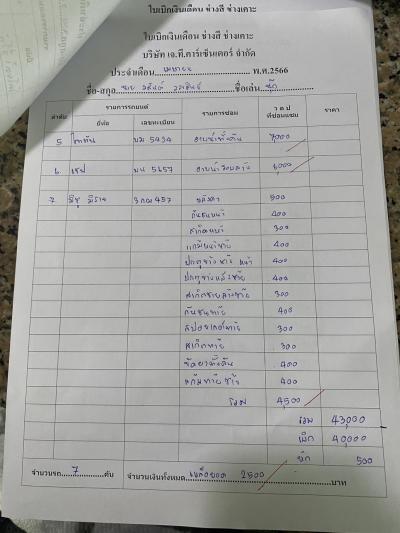 ใบเบิกเงินเดือน ช่างสี ช่างเคาะ
ใบเบิกเงินเดือน ช่างสี ช่างเคาะ
บริษัท เจ.ที.คาร์เซ็นเตอร์ จำกัด
ประจำเดือน เมษายน พ.ศ.2566
ชื่อ-สกุล นาย ชื่อเล่น
ลำดับ รายการรถยนต์ รายการซ่อม ว ด ป ที่ซ่อมแซม ราคา
ยี่ห้อ เลขทะเบียน
5 ไททัน 5434 7,000
6 เชฟ 5657 6,000
7 มิซู มิราจ 3กฌ 457 หลังคา 500
กันชนหน้า 400
สเกิตหน้า 300
แก้มหน้าซ้าย 400
ประตูข้างซ้าย หน้า 400
ประตูข้างหลังซ้าย 400
สเกิตชายล่างซ้าย 300
กันชนท้าย 400
สปอยเลอร์ท้าย 300
สเกิตท้าย 300
ขัดยาทั้งคัน 400
แก้มท้ายซ้าย 400
รวม 4,500
รวม 43,000
เบิก 40,000
หัก 500
จำนวนรถ 7 คัน จำนวนเงินทั้งหมด เหลือยอด 2500 บาท